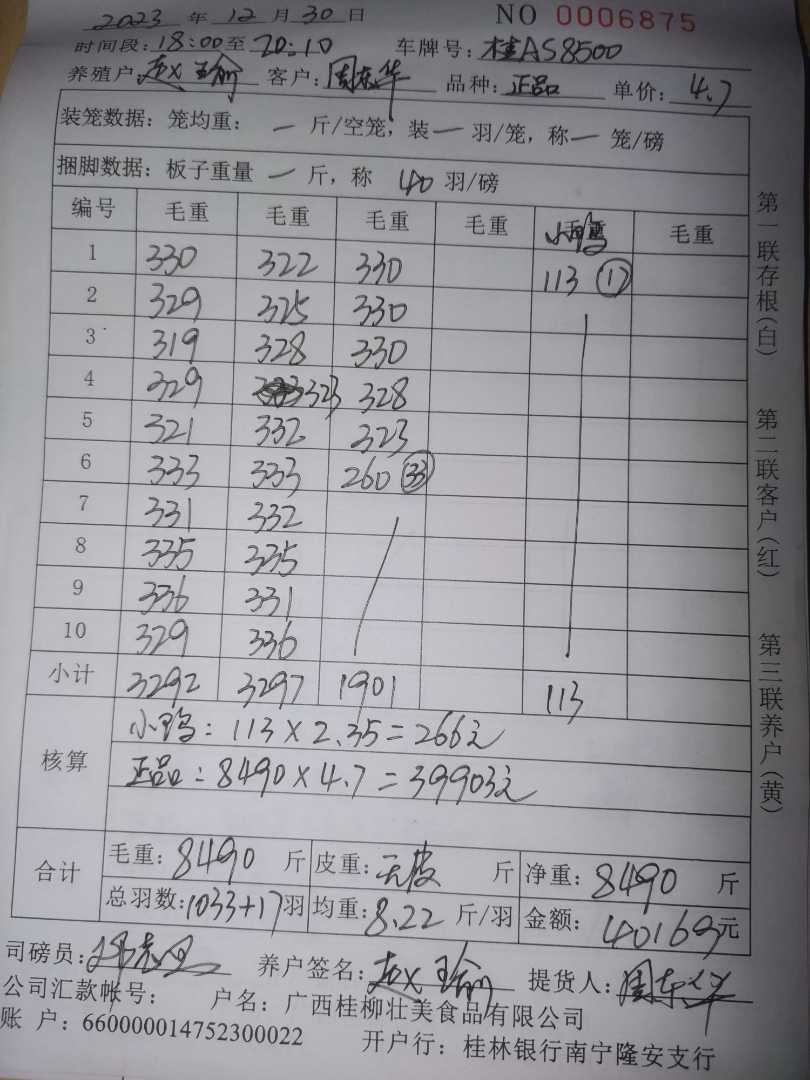 2023 年 12 月 30 日 NO 0006875
时间段: 18:00至 20:10 车牌号: 桂AS8500
养殖户: 赵玉瑜 客户: 周东华 品种: 正品 单价: 4.7
装笼数据: 笼均重: — 斤/空笼, 装 — 羽/笼, 称 — 笼/磅
捆脚数据: 板子重量 — 斤, 称 40 羽/磅
编号 毛重 毛重 毛重 毛重 小鸭 毛重
1 330 322 330 113 ⑰
2 329 325 330
3 319 328 330
4 329 323 328
5 321 332 323
6 333 333 260 ㉝
7 331 332
8 335 335
9 336 331
10 329 336
小计 3292 3297 1901 113
核算
小鸭: 113 × 2.35 = 266元
正品: 8490 × 4.7 = 39903元
合计
毛重: 8490 斤 皮重: 无皮 斤 净重: 8490 斤
总羽数: 1033+17 羽 均重: 8.22 斤/羽 金额: 40169 元
司磅员: 养户签名: 赵玉瑜 提货人: 周东华
公司汇款帐号: 户名: 广西桂柳壮美食品有限公司
账 户: 660000014752300022 开户行: 桂林银行南宁隆安支行
第一联存根(白) 第二联客户(红) 第三联养户(黄)